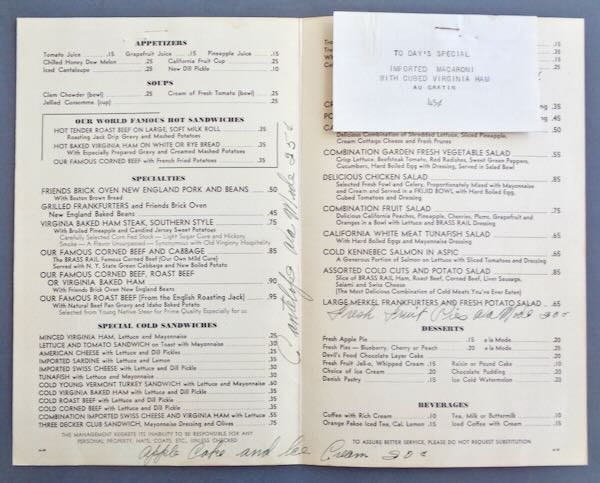 APPETIZERS
Tomato Juice .15 Grapefruit Juice .15 Pineapple Juice .15
Chilled Honey Dew Melon .25 California Fruit Cup .25
Iced Cantaloupe .25 New Dill Pickle .10
SOUPS
Clam Chowder (bowl) .25 Cream of Fresh Tomato (bowl) .25
Jellied Consomme (cup) .25
OUR WORLD FAMOUS HOT SANDWICHES
HOT TENDER ROAST BEEF ON LARGE, SOFT MILK ROLL .35
Roasting Jack Drip Gravy and Mashed Potatoes
HOT BAKED VIRGINIA HAM ON WHITE OR RYE BREAD .35
With Especially Prepared Gravy and Creamed Mashed Potatoes
OUR FAMOUS CORNED BEEF with French Fried Potatoes .35
SPECIALTIES
FRIENDS BRICK OVEN NEW ENGLAND PORK AND BEANS .50
With Boston Brown Bread
GRILLED FRANKFURTERS and Friends Brick Oven
New England Baked Beans .45
VIRGINIA BAKED HAM STEAK, SOUTHERN STYLE .75
With Broiled Pineapple and Candied Jersey Sweet Potatoes
Carefully Selected Corn Fed Stock — Light Sugar Cure and Hickory
Smoke — A Flavor Unsurpassed — Synonymous with Old Virginny Hospitality
OUR FAMOUS CORNED BEEF AND CABBAGE .85
The BRASS RAIL Famous Corned Beef (Our Own Mild Cure)
Served with N. Y. State Green Cabbage and New Boiled Potato
OUR FAMOUS CORNED BEEF, ROAST BEEF
OR VIRGINIA BAKED HAM .90
With Friends Brick Oven New England Beans
OUR FAMOUS ROAST BEEF (From the English Roasting Jack) .95
With Natural Beef Pan Gravy and Idaho Baked Potato
Selected from Young Native Steer for Prime Quality Especially for us
Cantelope a la Mode 25¢
SPECIAL COLD SANDWICHES
MINCED VIRGINIA HAM, Lettuce and Mayonnaise .25
LETTUCE AND TOMATO SANDWICH on Toast with Mayonnaise .30
AMERICAN CHEESE with Lettuce and Dill Pickles .25
IMPORTED SARDINE with Lettuce and Lemon .35
IMPORTED SWISS CHEESE with Lettuce and Dill Pickle .30
TUNAFISH with Lettuce and Mayonnaise .30
COLD YOUNG VERMONT TURKEY SANDWICH with Lettuce and Mayonnaise .60
COLD VIRGINIA BAKED HAM with Lettuce and Dill Pickles .35
COLD ROAST BEEF with Lettuce and Dill Pickles .35
COLD CORNED BEEF with Lettuce and Dill Pickles .35
COMBINATION IMPORTED SWISS CHEESE AND VIRGINIA HAM with Lettuce .55
THREE DECKER CLUB SANDWICH, Mayonnaise Dressing and Olives .75
THE MANAGEMENT REGRETS ITS INABILITY TO BE RESPONSIBLE FOR ANY
PERSONAL PROPERTY, HATS, COATS, ETC., UNLESS CHECKED
Apple Cake and Ice Cream 20¢
TO DAY'S SPECIAL
IMPORTED MACARONI
WITH CUBED VIRGINIA HAM
AU GRATIN
45¢
Delicious Combination of Shredded Lettuce, Sliced Pineapple,
Cream Cottage Cheese and Fresh Prunes
COMBINATION GARDEN FRESH VEGETABLE SALAD .65
Crisp Lettuce, Beefsteak Tomato, Red Radishes, Sweet Green Peppers,
Cucumbers, Hard Boiled Egg with Dressing, Served in Salad Bowl
DELICIOUS CHICKEN SALAD .85
Selected Fresh Fowl and Celery, Proportionately Mixed with Mayonnaise
and Cream and Served in a FRIJID BOWL, with Hard Boiled Egg,
Cubed Tomatoes and Dressing
COMBINATION FRUIT SALAD .75
Delicious California Peaches, Pineapple, Cherries, Plums, Grapefruit and
Oranges in a Bowl with Lettuce and BRASS RAIL Dressing
CALIFORNIA WHITE MEAT TUNAFISH SALAD .65
With Hard Boiled Eggs and Mayonnaise Dressing
COLD KENNEBEC SALMON IN ASPIC .65
A Generous Portion of Salmon on Lettuce with Sliced Tomatoes and Dressing
ASSORTED COLD CUTS AND POTATO SALAD .85
Slice of BRASS RAIL Ham, Roast Beef, Corned Beef, Liver Sausage,
Salami and Swiss Cheese
(The Most Delicious Combination of Cold Meats You've Ever Eaten)
LARGE MERKEL FRANKFURTERS AND FRESH POTATO SALAD .65
Fresh Fruit Pies a la Mode 20¢
DESSERTS
Fresh Apple Pie .15 a la Mode .20
Fresh Pies — Blueberry, Cherry or Peach .20 a la Mode .25
Devil's Food Chocolate Layer Cake .20
Fresh Fruit Jell-o, Whipped Cream .15 Raisin or Pound Cake .10
Choice of Ice Cream .20 Chocolate Pudding .20
Danish Pastry .15 Ice Cold Watermelon .20
BEVERAGES
Coffee with Rich Cream .10 Tea, Milk or Buttermilk .10
Orange Pekoe Iced Tea, Cal. Lemon .15 Iced Coffee with Cream .15
TO ASSURE BETTER SERVICE, PLEASE DO NOT REQUEST SUBSTITUTION